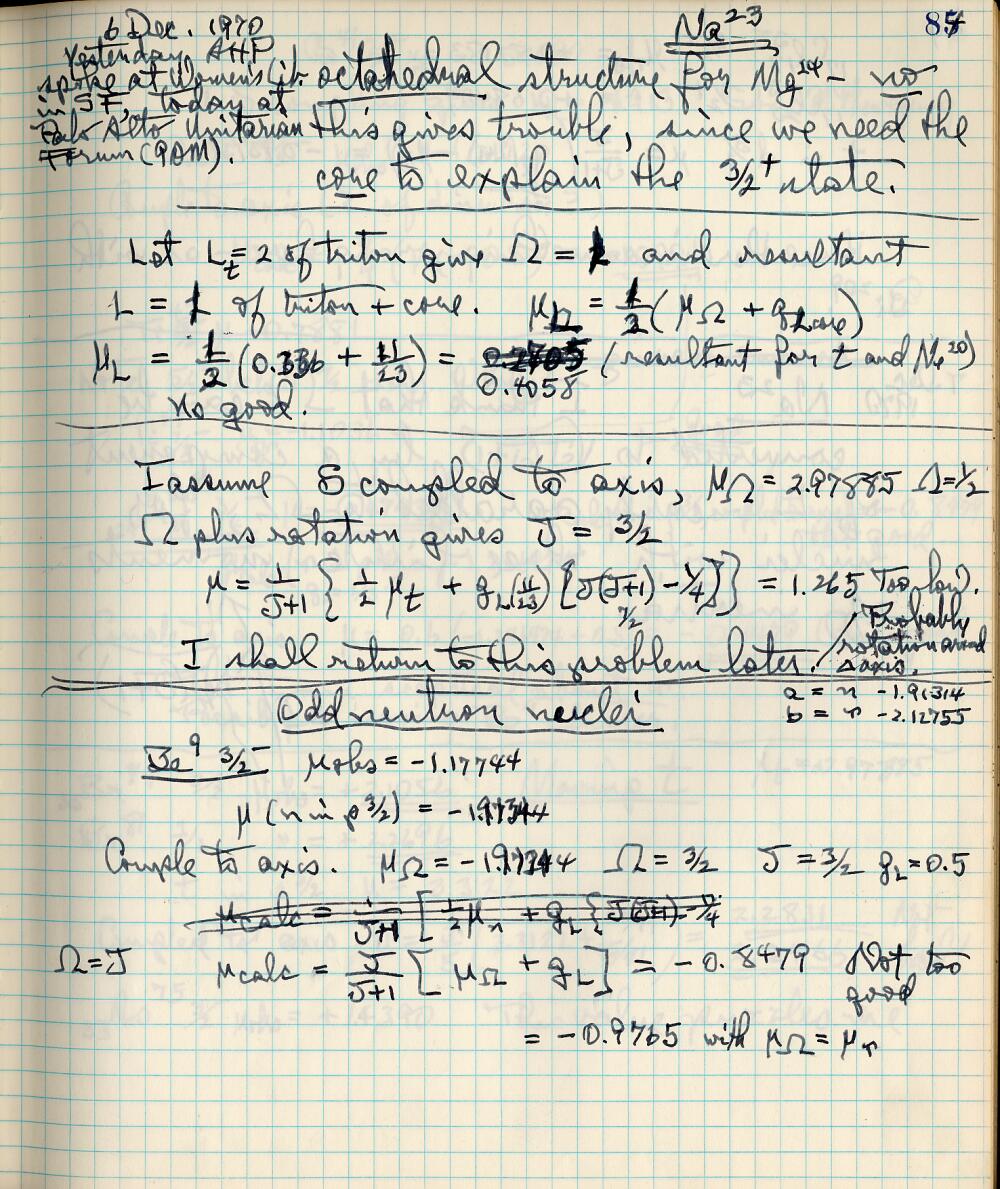 6 Dec. 1970
Yesterday AHP
spoke at Women's Lib.
in SF, today at
Palo Alto Unitarian
Forum (9AM).
Na²³
85
octahedral structure for Mg²⁴ – no
This gives trouble, since we need the
core to explain the 3/2⁺ state.
Let L_t = 2 of triton give Ω = 1 and resultant
L = 1 of triton + core. μ_L = 1/2 (μ_Ω + g_L core)
μ_L = 1/2 (0.336 + 11/23) = 0.4058 (resultant for t and Ne²⁰)
No good.
I assume S coupled to axis, μ_Ω = 2.97885 Ω = 1/2
Ω plus rotation gives J = 3/2
μ = 1/(J+1) { 1/2 μ_t + g_L (11/23) [J(J+1) – 1/4] } = 1.265 Too low.
7/2
Probably
rotation around
axis.
I shall return to this problem later.
Odd neutron nuclei
a = n -1.91314
b = r -2.12755
Be⁹ 3/2⁻ μ obs = -1.17744
μ (n in p 3/2) = -1.91344
Couple to axis. μ_Ω = -1.91344 Ω = 3/2 J = 3/2 g_L = 0.5
μ calc = 1/(J+1) [ 1/2 μ_n + g_L { J(J+1) -
Ω = J μ calc = J/(J+1) [ μ_Ω + g_L ] = -0.8479 Not too
good
= -0.9765 with μ_Ω = μ_r